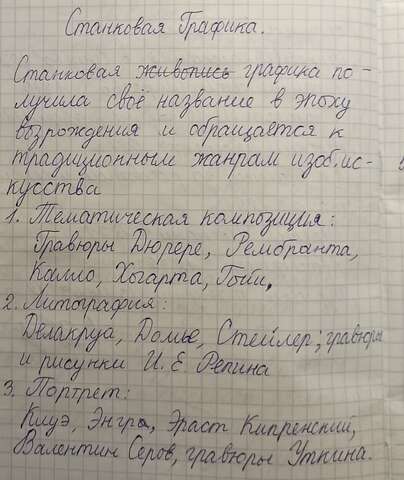 Станковая Графика.
Станковая живопись графика по-
лучила своё название в эпоху
возрождения и обращается к
традиционным жанрам изоб.ис-
кусства
1. Тематическая композиция:
Гравюры Дюрере, Рембранта,
Калло, Хогарта, Гойи.
2. Литография:
Делакруа, Домье, Стейлер; гравюры
и рисунки И. Е. Репина
3. Портрет:
Клуэ, Энгра, Эраст Кипренский,
Валентин Серов, гравюры Уткина.